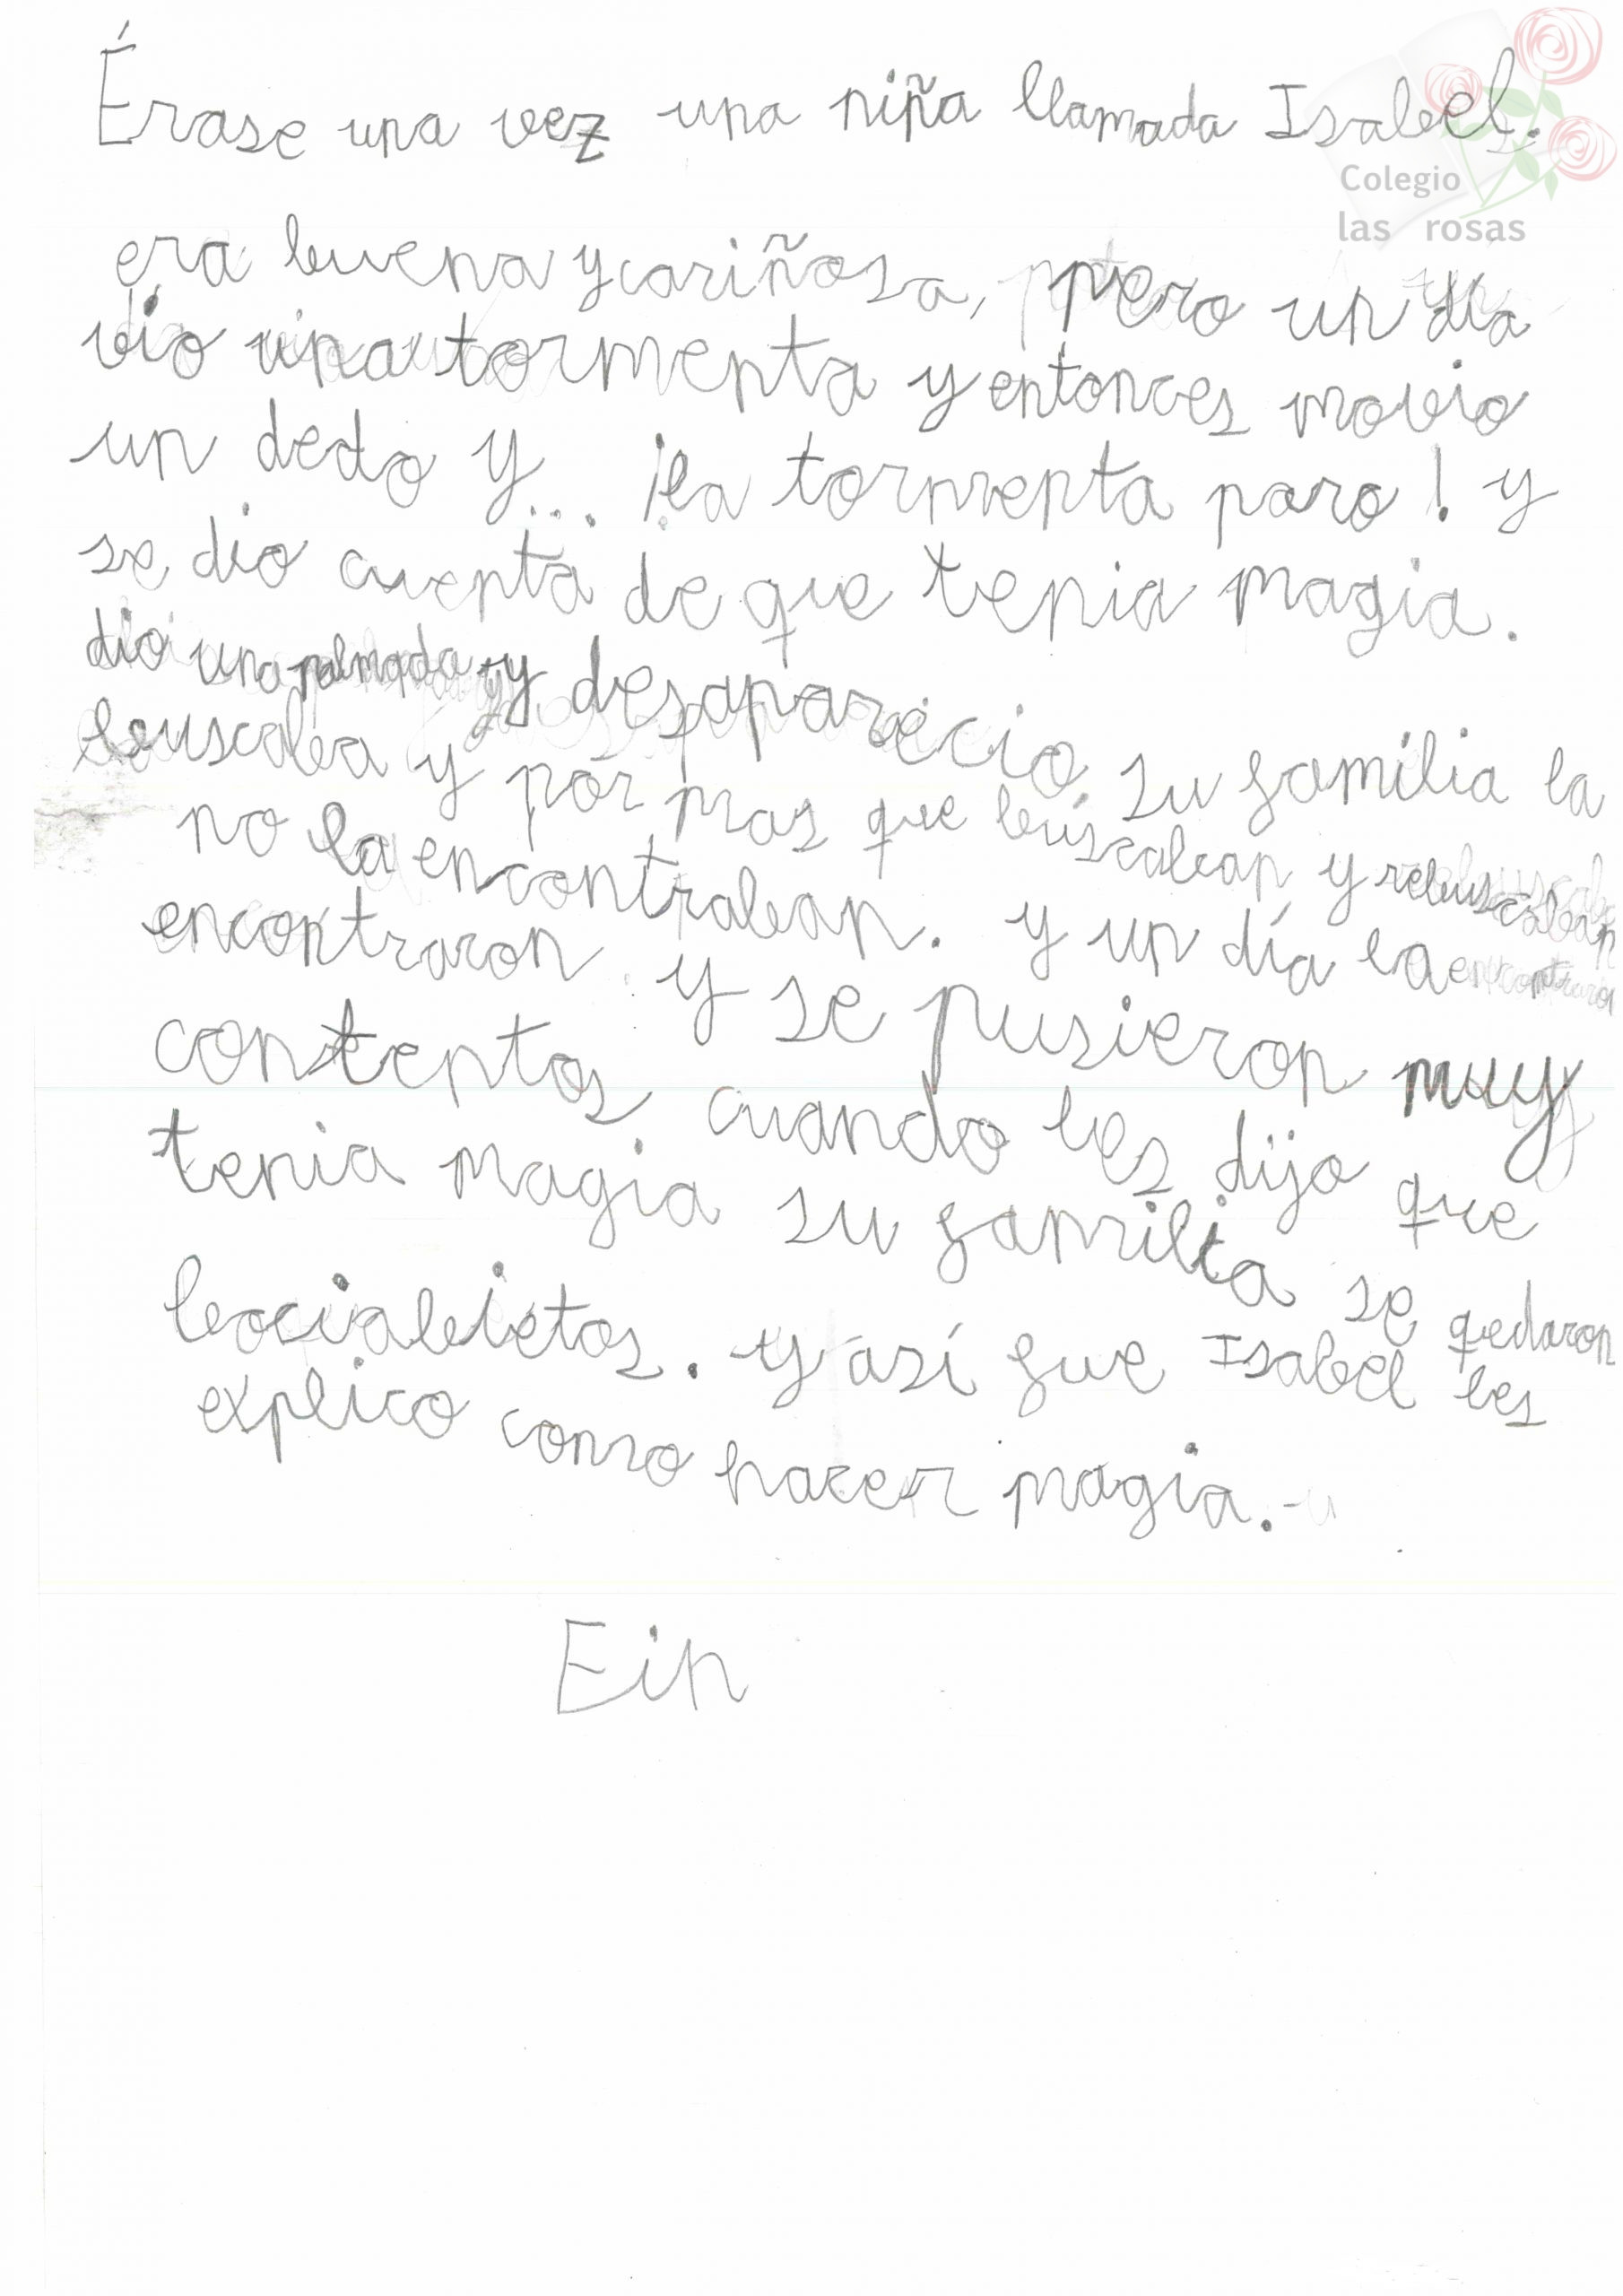 Érase una vez una niña llamada Isabel.
Colegio
las rosas
era buena y cariñosa, pero un día
vio una tormenta y entonces movio
un dedo y... ¡la tormenta paro! y
se dio cuenta de que tenia magia.
dio una palmada y desaparecio su familia la
buscaba y por mas que buscaban y rebuscaban
no la encontraban. y un día la
encontraron y se pusieron muy
contentos cuando les dijo que
tenia magia su familia se qedaron
bociabietos. y así fue Isabel les
explico como hacer magia.
Fin